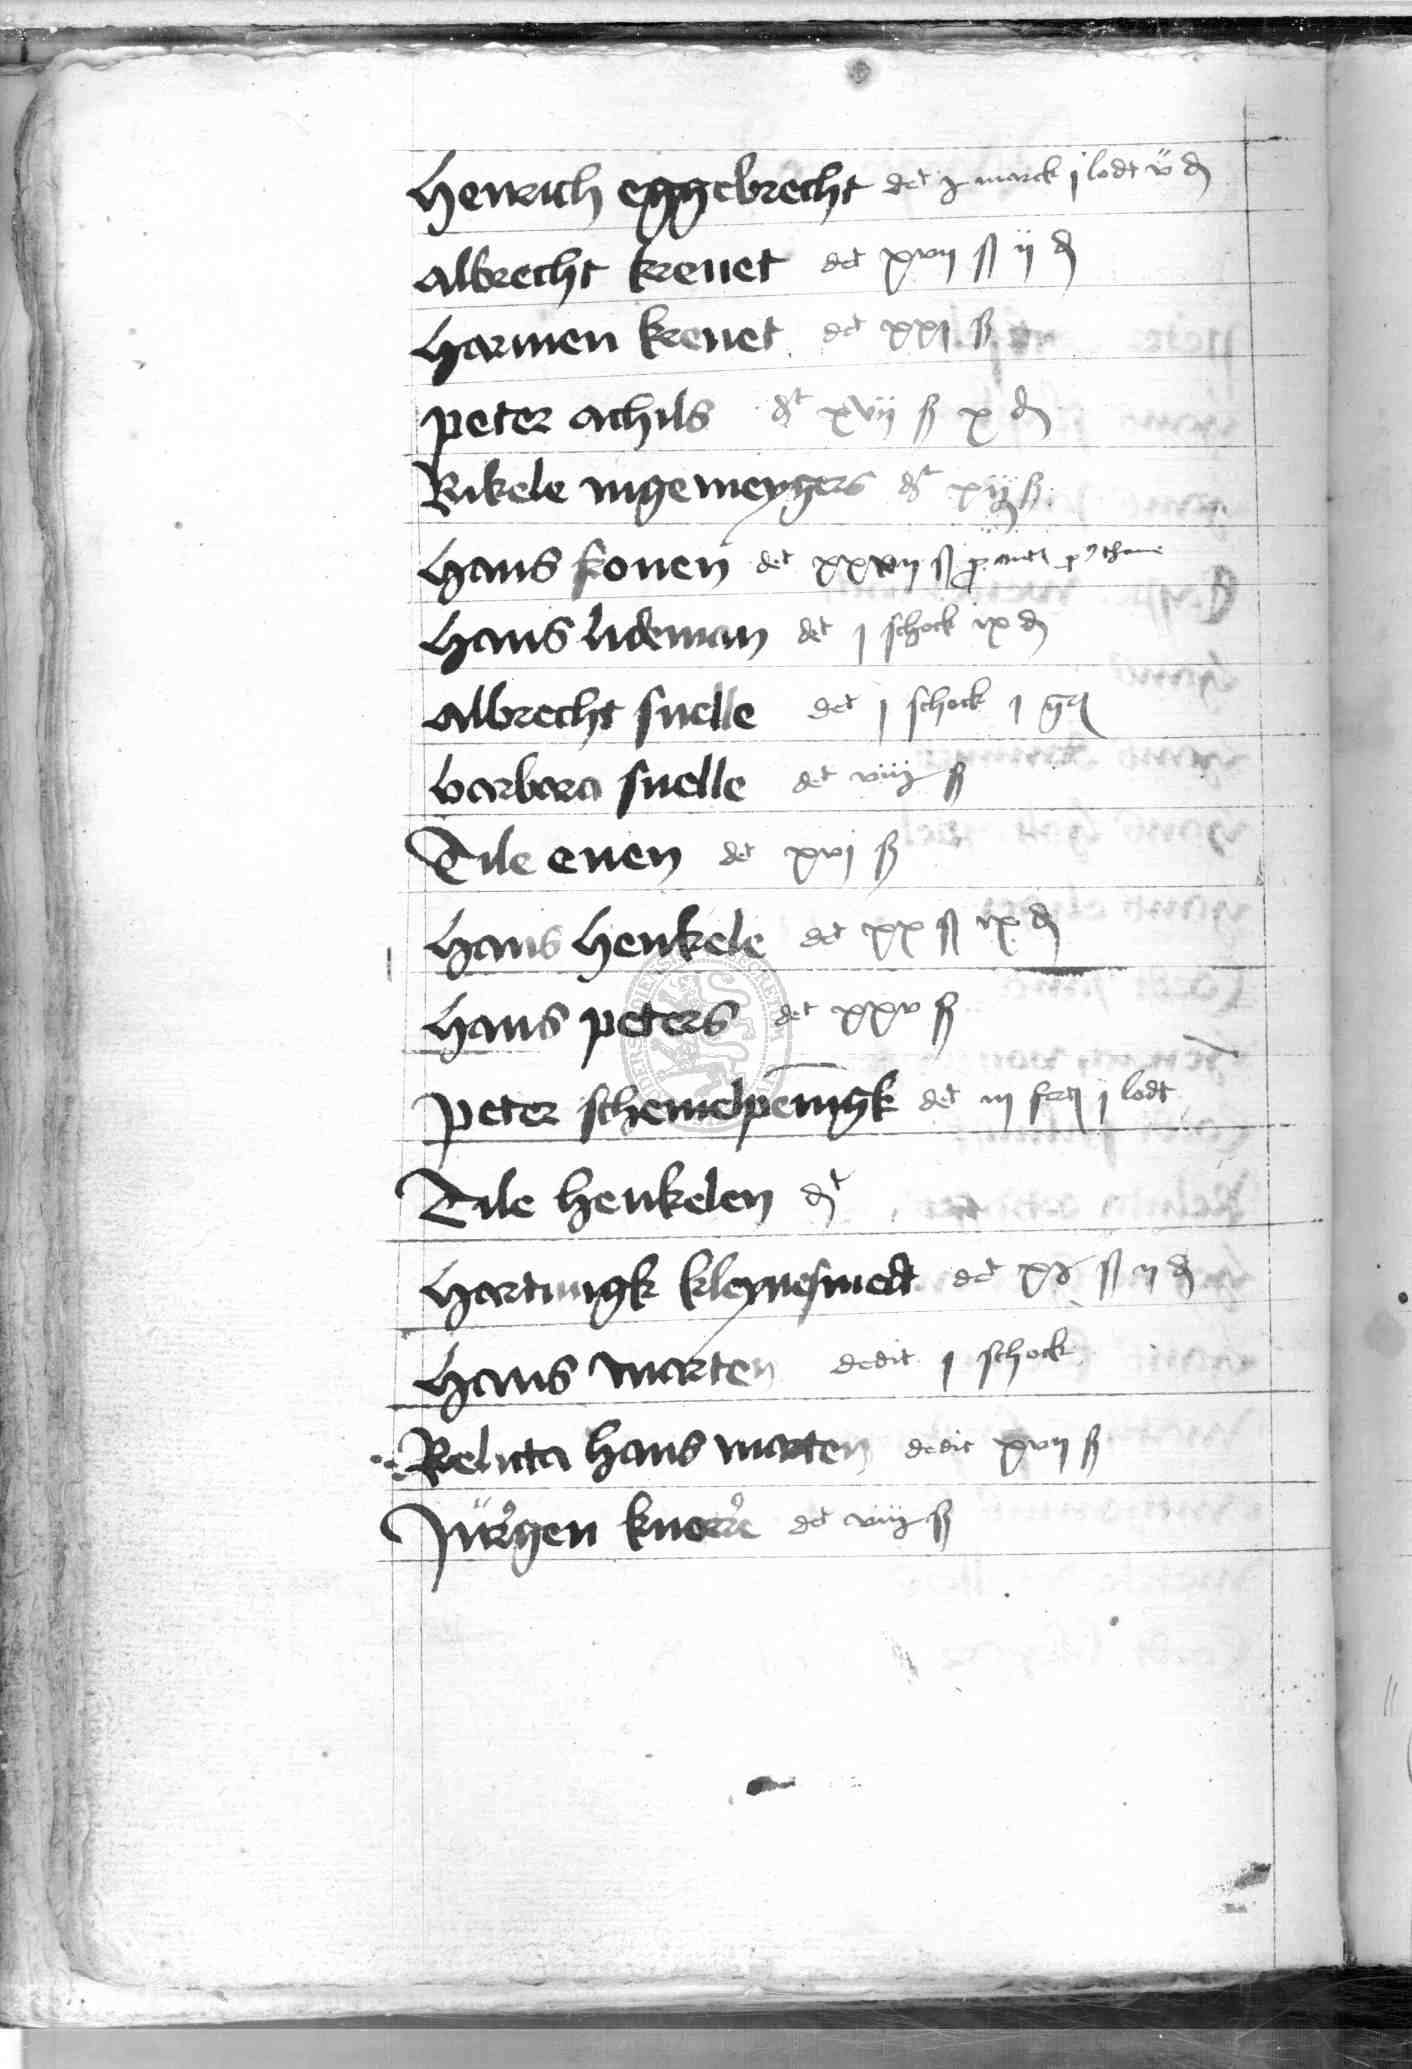 Henrich eggebrecht det j marck j lodt v ₰
Albrecht krevet det xvij ß ij ₰
Harmen krevet det xxj ß
Peter achils dt xvij ß x ₰
Rikele nigemeygers dt xij ß
Hans konen det xxvij ß
Hans lideman det j schock ix ₰
Albrecht snelle det j schock j gr
barbara snelle det viiij ß
Tile even det xvj ß
Hans henkele det xx ß ix ₰
Hans peters det xxv ß
Peter schemelpenigk det iij fert j lodt
Tile henkelen dt
Hartmigk kleynesmedt det xv ß ij ₰
Hans marten dedit j schock
Relicta hans marten dedit xvij ß
Jürgen knorre det viiij ß